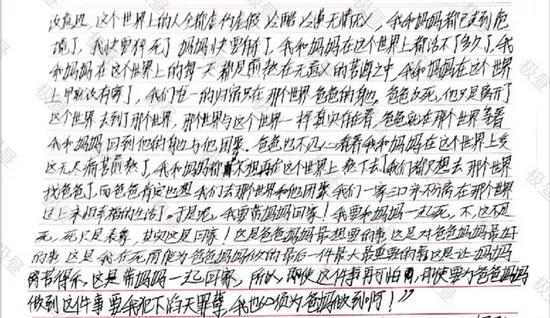 这个世界上的人全都虚伪虚假
我和妈妈都已走到危
境了,我快要得死了,妈妈快要得了,我和妈妈在这个世界上都活不了多久了,我
和妈妈在这个世界上的每一天都是煎熬在无意义的苦海之中,我和妈妈在这个世界
上早就没有家了,我们唯一的归宿只在那个世界爸爸的身边,爸爸没死,他只是离开了
这个世界去到了那个世界,那个世界与这个世界一样真实存在着,爸爸就在那个世界等着
我和妈妈回到他的身边与他团聚。爸爸也不忍心看着我和妈妈在这个世界上受
这无尽痛苦煎熬了,我和妈妈都不想再在这个世界上熬下去了我们都只想去那个世界
找爸爸了,而爸爸肯定也想我们去那个世界和他团聚,我们一家三口永不分离在那个世界
过上永恒幸福的生活了。于是呢,我要带妈妈回家!我要和妈妈一起死,不,这不是
死,死只是表象,其实这是回家!这是爸爸妈妈最想要的事,这是对爸爸妈妈最好
的事,这是我在死前能为爸爸妈妈做的最后一件最大最重要的事,这是让妈妈
离苦得乐,这是带妈妈一起回家,所以,即使这件事再可怕,即使要为爸爸妈妈
做到这件事要我犯下滔天罪孽,我也必须为爸妈做到啊!”
极昼